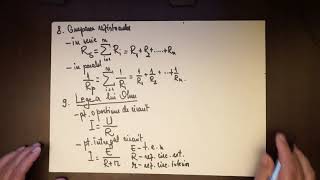 8. Gruparea rezistoarelor
- în serie
R_S = ∑_{i=1}^{n} R_i = R_1 + R_2 + ..... + R_n
- în paralel
1/R_P = ∑_{i=1}^{n} 1/R_i = 1/R_1 + 1/R_2 + ... + 1/R_n
9. Legea lui Ohm
- pt. o porțiune de circuit
I = U/R
- pt. întregul circuit
I = E/(R+r)
E - t.e.m
R - rez. circ. ext.
r - rez. circ. interior